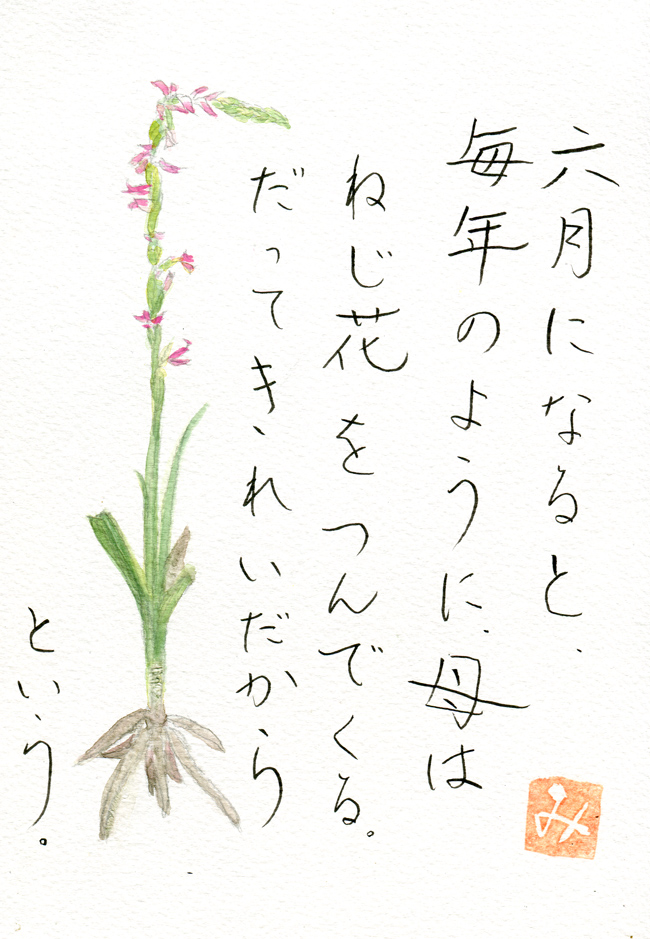 六月になると、
毎年のように、母は
ねじ花をつんでくる。
だってきれいだから
という。
み